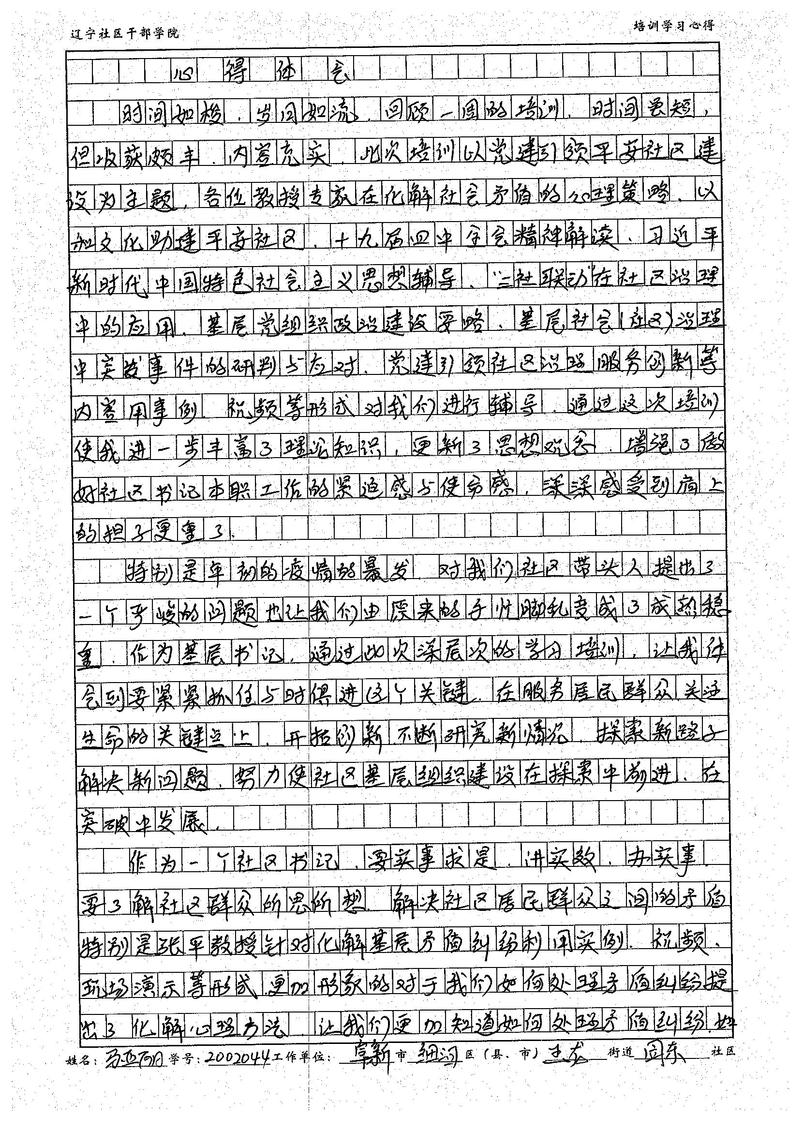 辽宁社区干部学院 培训学习心得
心得体会
时间如梭，岁月如流，回顾一周的培训，时间虽短，
但收获颇丰，内容充实，此次培训以党建引领平安社区建
设为主题，各位教授专家在化解社会矛盾的心理策略，以
和文化助建平安社区，十九届四中全会精神解读，习近平
新时代中国特色社会主义思想辅导，“三社联动”在社区治理
中的应用，基层党组织政治建设要略，基层社会（社区）治理
中突发事件的研判与应对，党建引领社区治理服务创新等
内容用事例 视频等形式对我们进行辅导，通过这次培训
使我进一步丰富了理论知识，更新了思想观念，增强了做
好社区书记本职工作的紧迫感与使命感，深深感受到肩上
的担子更重了.
特别是年初的疫情的暴发，对我们社区带头人提出了
一个严峻的问题也让我们由原来的手忙脚乱变成了成熟稳
重，作为基层书记，通过此次深层次的学习培训，让我体
会到要紧紧抓住与时俱进这个关键，在服务居民群众关注
生命的关键点上，开拓创新，不断研究新情况，探索新路子
解决新问题，努力使社区基层组织建设在探索中前进，在
突破中发展.
作为一个社区书记，要实事求是，讲实效，办实事，
要了解社区群众所思所想，解决社区居民群众之间的矛盾
特别是张平教授针对化解基层矛盾纠纷利用实例，视频，
现场演示等形式，更加形象的对于我们如何处理矛盾纠纷提
出了化解心理办法，让我们更加知道如何处理矛盾纠纷，
姓名： 学号：2002044 工作单位： 阜新 市 细河 区（县、市） 街道 社区